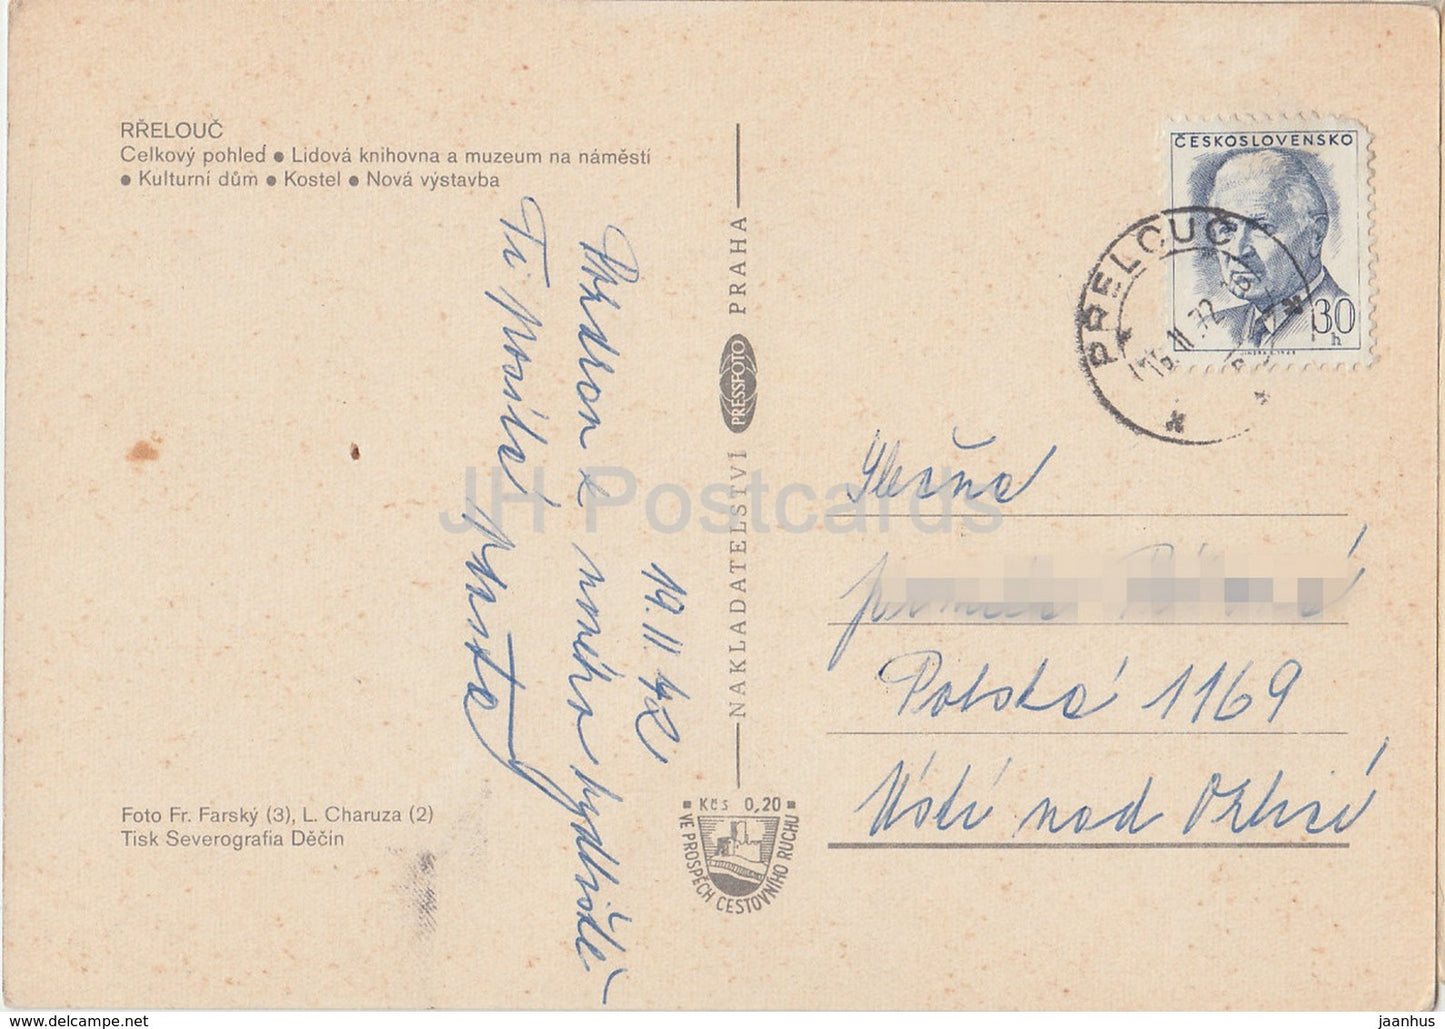 RŘELOUČ
Celkový pohled ● Lidová knihovna a muzeum na náměstí
● Kulturní dům ● Kostel ● Nová výstavba
Pozdrav z nového bydliště
Ti posílá
19. II. 72
NAKLADATELSTVÍ PRESSFOTO PRAHA
ČESKOSLOVENSKO
30 h
PŘELOUČ
Slečna
Polská 1169
Ústí nad Orlicí
Foto Fr. Farský (3), L. Charuza (2)
Tisk Severografia Děčín
Kčs 0,20
VE PROSPĚCH CESTOVNÍHO RUCHU
JH Postcards
www.delcampe.net
jaanhus